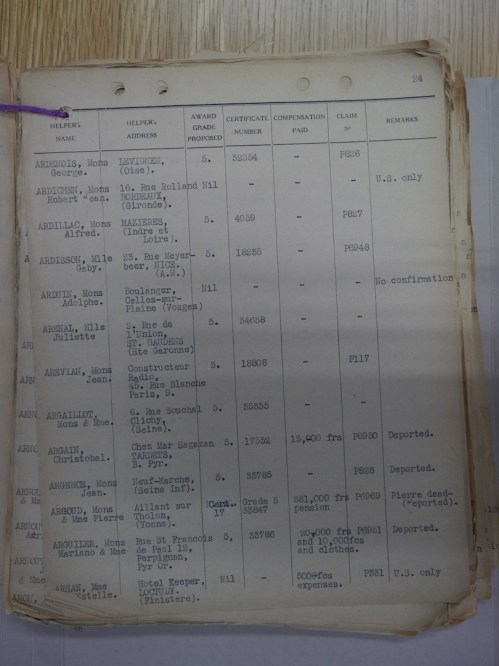 24
HELPER's NAME HELPER's ADDRESS AWARD GRADE PROPOSED CERTIFICATE NUMBER COMPENSATION PAID CLAIM Nº REMARKS
ARDENOIS, Mons LEVIGNEN, 5. 32354 - P826
George. (Oise).
ARDICHEN, Mons 16. Rue Rolland Nil - - - U.S. only
Robert Jean. BORDEAUX,
(Gironde).
ARDILLAC, Mons MAZIERES, 5. 4059 - P827
Alfred. (Indre et
Loire).
ARDISSON, Mlle 25. Rue Meyer- 5. 18235 - P6948
Gaby. beer, NICE.
(A.M.)
ARDUIN, Mons Boulanger, Nil - - - No confirmation
Adolphe. Celles-sur-
Plaine (Vosges)
ARENAL, Mlle 2. Rue de 5. 54658 - -
Juliette l'Union,
ST. GAUDENS
(Hte Garonne)
AREVIAN, Mons Constructeur 5. 18808 - P117
Jean. Radio,
45. Rue Blanche
Paris, 9.
ARGAILLOT, 6. Rue Souchal 5. 35535 - -
Mons & Mme. Clichy,
(Seine).
ARGAIN, Chez Mar Sagaman 5. 17552 15,000 frs P6950 Deported.
Christobal. TARBETS,
B. Pyr.
ARGENCE, Mons Neuf-Marche, 5. 33785 - P828 Deported.
Jean. (Seine Inf).
ARGOUD, Mons Aillant sur Cert. Grade 5 381,000 frs P6969 Pierre dead-
& Mme Pierre Tholon, 17 33847 pension (Deported).
(Yonne).
ARGUILLER, Mons Rue St Francois 5. 33786 20,000 frs P6951 Deported.
Mariano & Mme de Paul 12, and 10,000fcs
Perpignan, and clothes.
Pyr Or.
ARHAN, Mme Hotel Keeper, Nil - 5000 fcs P331 U.S. only
Estelle. LOCTUDY. expenses.
(Finistere).